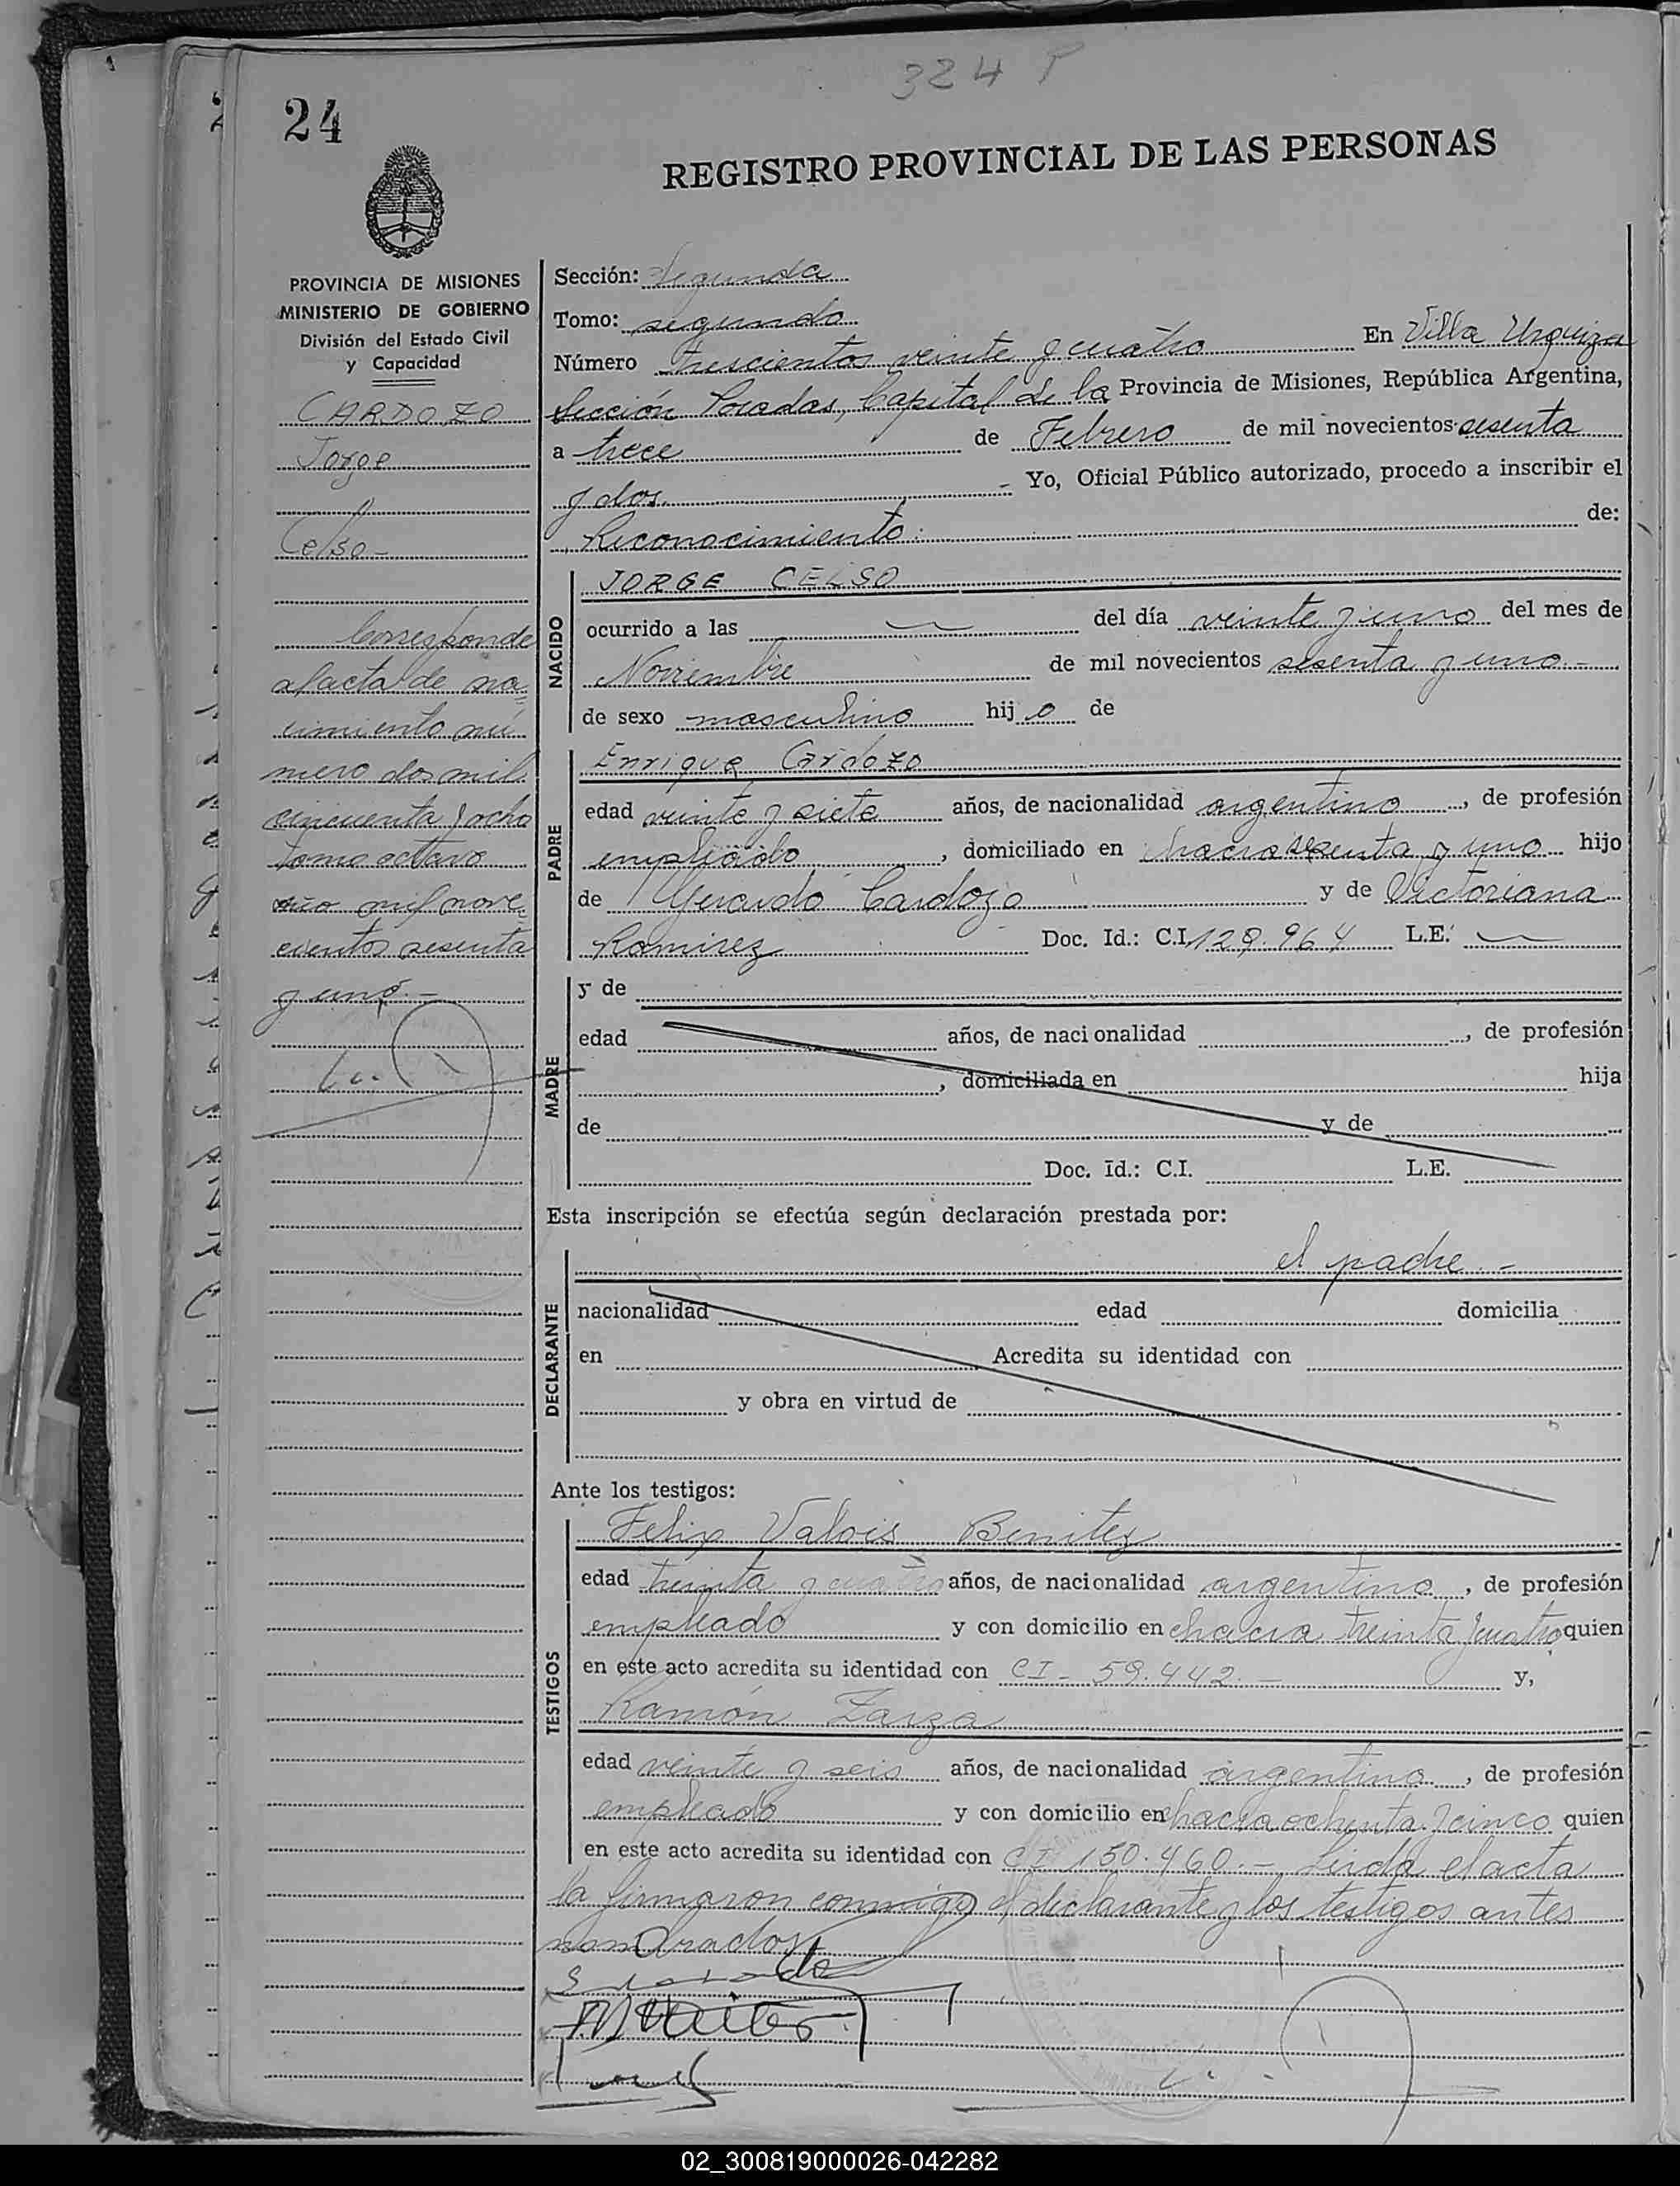 324 T
24
REGISTRO PROVINCIAL DE LAS PERSONAS
PROVINCIA DE MISIONES
MINISTERIO DE GOBIERNO
División del Estado Civil
y Capacidad
CARDOZO
Jorge
Celso -
Corresponde
al acta de na-
cimiento nú-
mero dos mil
cincuenta y ocho
tomo octavo
año mil nove-
cientos sesenta
y uno.-
Sección: Segunda
Tomo: segundo
Número trescientos veinte y cuatro En Villa Urquiza
Sección Posadas, Capital de la Provincia de Misiones, República Argentina,
a trece de Febrero de mil novecientos sesenta
y dos. - Yo, Oficial Público autorizado, procedo a inscribir el
Reconocimiento: de:
NACIDO
JORGE CELSO
ocurrido a las — del día veinte y uno del mes de
Noviembre de mil novecientos sesenta y uno.-
de sexo masculino hijo de
PADRE
Enrique Cardozo
edad veinte y siete años, de nacionalidad argentino, de profesión
empleado, domiciliado en chacra sesenta y uno hijo
de Gerardo Cardozo y de Victoriana
Ramirez Doc. Id.: C.I. 129.964 L.E. —
MADRE
y de
edad años, de nacionalidad , de profesión
, domiciliada en hija
de y de
Doc. Id.: C.I. L.E.
Esta inscripción se efectúa según declaración prestada por:
DECLARANTE
el padre.-
nacionalidad edad domicilia
en Acredita su identidad con
y obra en virtud de
Ante los testigos:
TESTIGOS
Felix Valois Benitez
edad treinta y cuatro años, de nacionalidad argentino, de profesión
empleado y con domicilio en chacra treinta y cuatro quien
en este acto acredita su identidad con CI - 59.442.- y,
Ramón Zarza
edad veinte y seis años, de nacionalidad argentino, de profesión
empleado y con domicilio en chacra ochenta y cinco quien
en este acto acredita su identidad con CI 150.460.- Leida el acta
la firmaron conmigo el declarante y los testigos antes
nombrados.
02_300819000026-042282